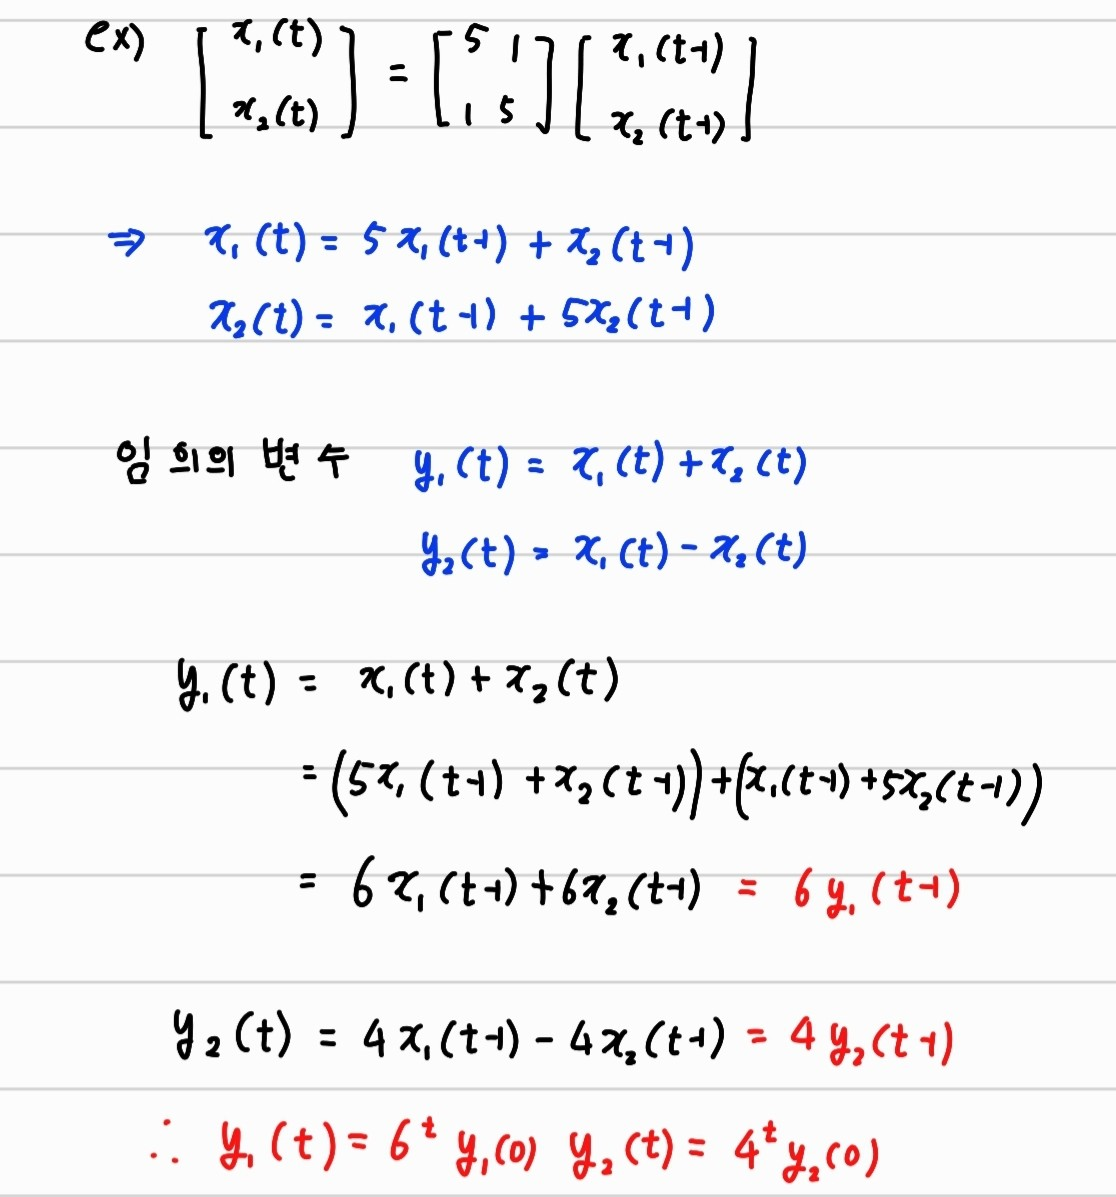 ex) [x₁(t) x₂(t)] = [5 1 1 5] [x₁(t-1) x₂(t-1)]
⇒ x₁(t) = 5x₁(t-1) + x₂(t-1)
x₂(t) = x₁(t-1) + 5x₂(t-1)
임의의 변수 y₁(t) = x₁(t) + x₂(t)
y₂(t) = x₁(t) - x₂(t)
y₁(t) = x₁(t) + x₂(t)
= (5x₁(t-1) + x₂(t-1)) + (x₁(t-1) + 5x₂(t-1))
= 6x₁(t-1) + 6x₂(t-1) = 6y₁(t-1)
y₂(t) = 4x₁(t-1) - 4x₂(t-1) = 4y₂(t-1)
∴ y₁(t) = 6ᵗ y₁(0) y₂(t) = 4ᵗ y₂(0)